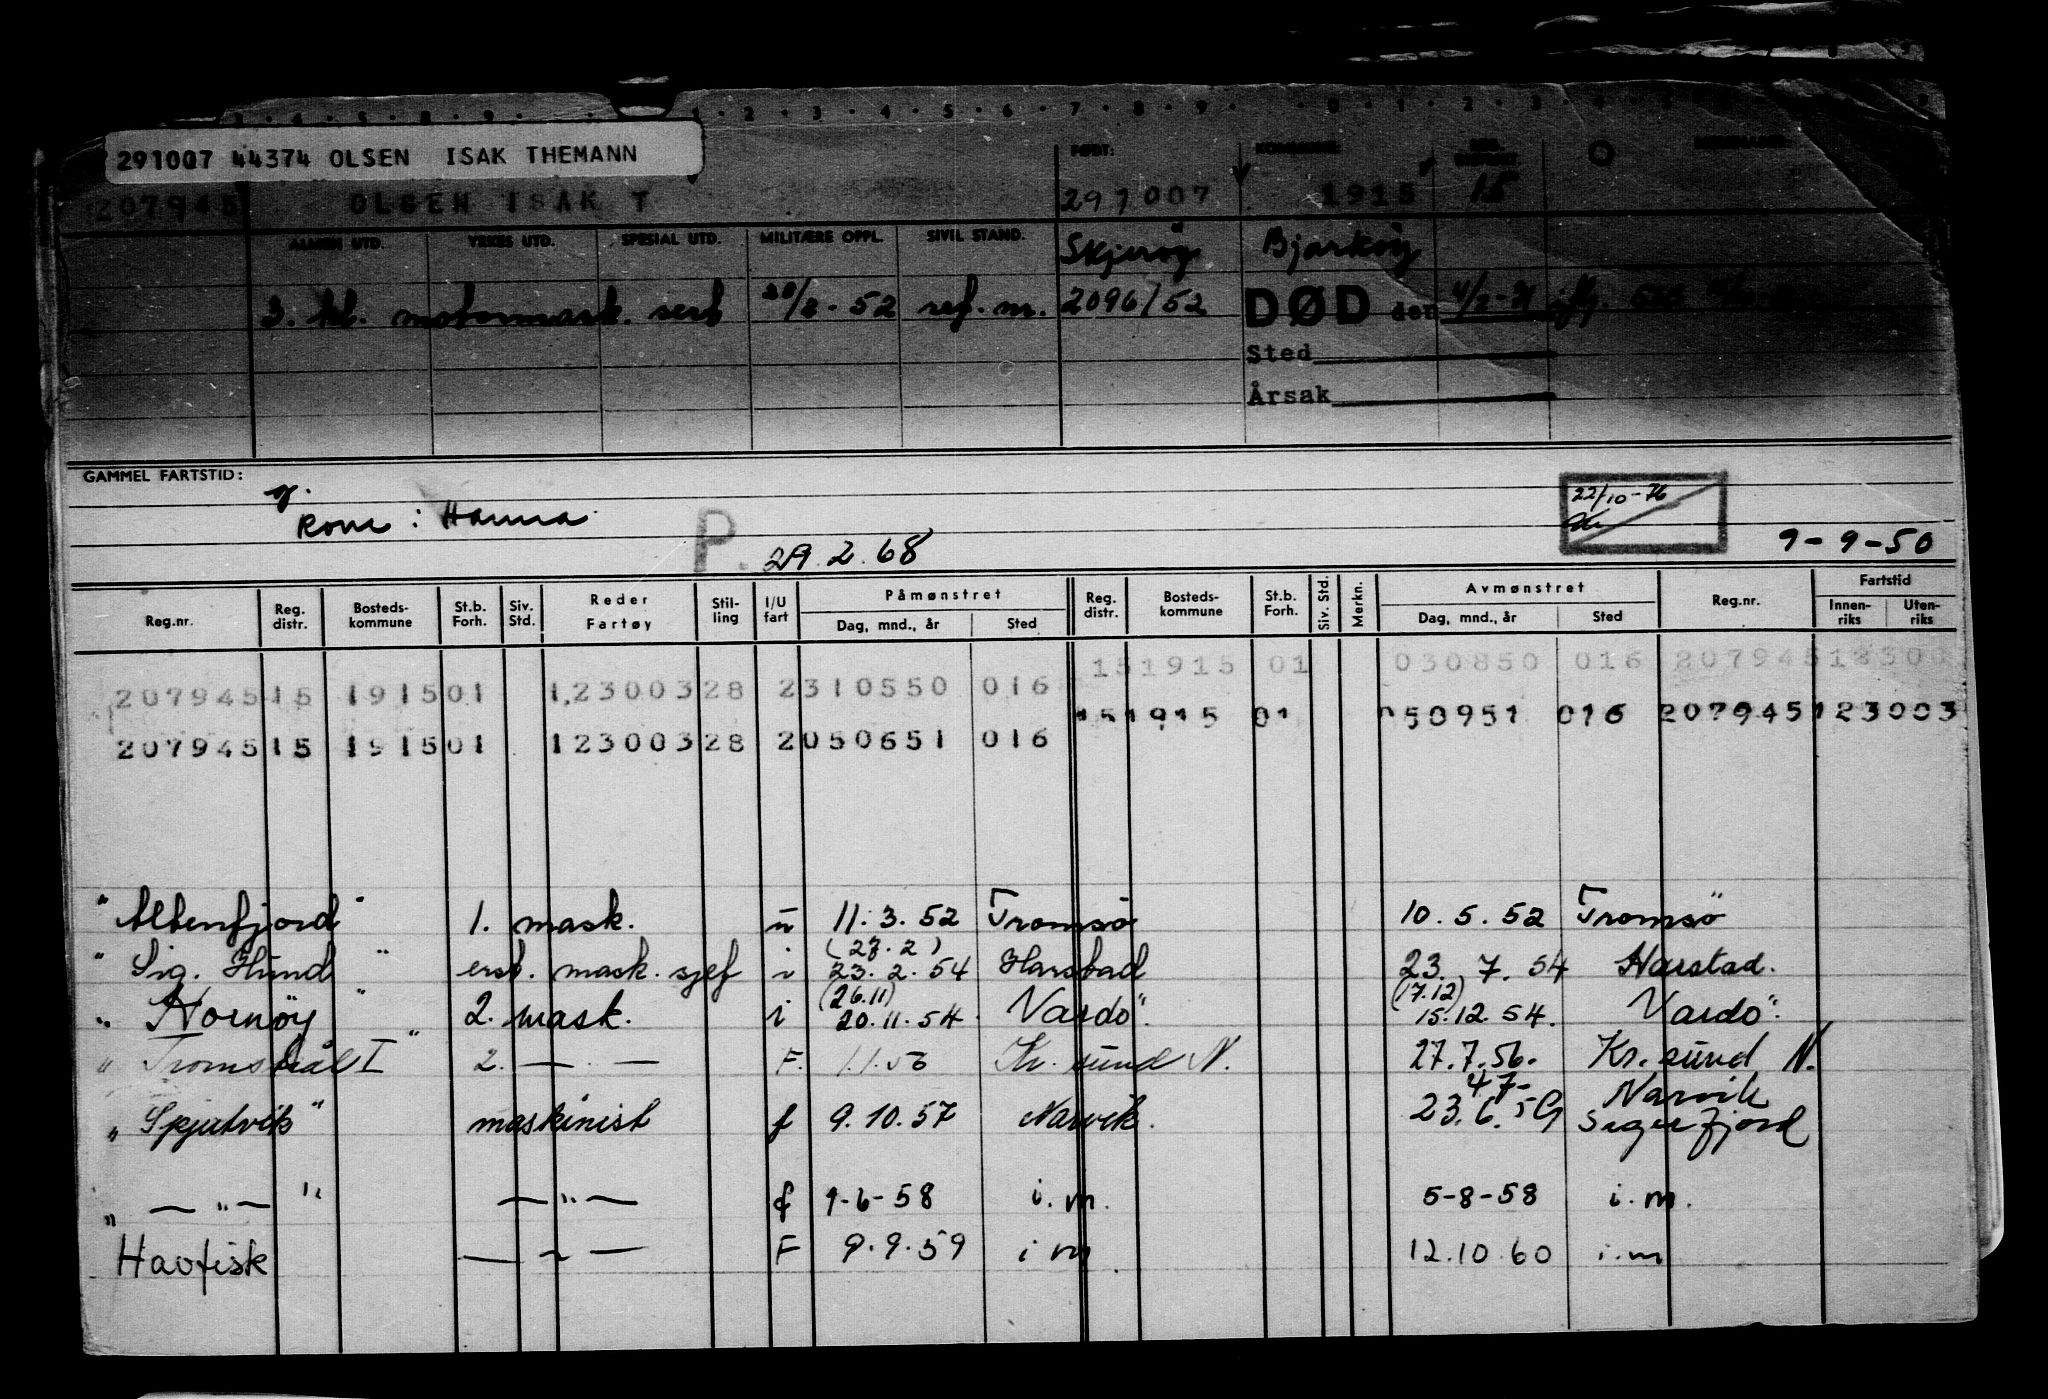 291007 44374 OLSEN ISAK THEMANN
FØDT: KOMMUNE:
207945 OLSEN ISAK T 291007 1915 15
ALMEN UTD. YRKES UTD. SPESIAL UTD. MILITÆRE OPPL. SIVIL STAND. Skjerøy Bjarkøy
3. kl. motormask. sert 20/8-52 ref. nr. 2096/52 DØD den 4/2-71
Sted
Årsak
GAMMEL FARTSTID:
Kone: Hanna
22/10-76
P. 29.2.68 9-9-50
Reg.nr. Reg. distr. Bosteds-kommune St.b. Forh. Siv. Std. Reder Fartøy Stil-ling I/U fart Påmønstret Dag, mnd., år Sted Reg. distr. Bosteds-kommune St.b. Forh. Siv. Std. Merkn. Avmønstret Dag, mnd., år Sted Reg.nr. Fartstid Innen-riks Uten-riks
207945 15 1915 01 1,23003 28 2 310550 016 15 1915 01 030850 016 207945 12300
207945 15 1915 01 123003 28 2 050651 016 15 1915 01 050951 016 207945 123003
"Altenfjord" 1. mask. u 11.3.52 Tromsö 10.5.52 Tromsö
"Sig. Hund" erst. mask. sjef i (27.2) 23.2.54 Harstad 23.7.54 Harstad.
"Hornøy" 2. mask. i (26.11) 20.11.54 Vardö. (17.12) 15.12.54. Vardö.
"Tromsbål I" 2. — . — F. 1.1.56 Kr. sund N. 27.7.56. Kr. sund N.
"Skjutvik" maskinist f 9.10.57 Narvik. 23.6.59 Narvik Sigerfjord
" — " — " — " — f 9-6-58 i.m. 5-8-58 i.m.
Havfisk — " — F 9.9.59 i m 12.10.60 i.m